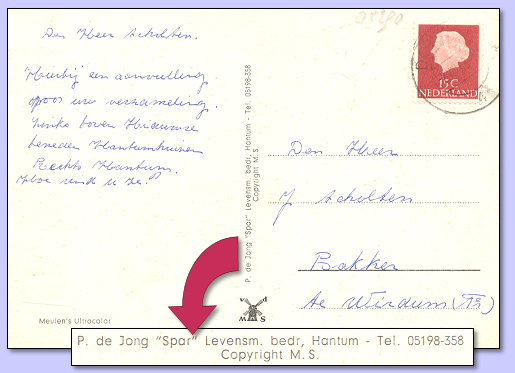 Den Heer Scholten.
Hierbij een aanvulling
voor uw verzameling.
Links boven Hiaure
beneden Hantumhuizen
Rechts Hantum.
Hoe vind u ze?
Meulen's Ultracolor
05190
15C
NEDERLAND
P. de Jong "Spar" Levensm. bedr, Hantum - Tel. 05198-358
Copyright M.S.
v d
M S
Den Heer
J Scholten
Bakker
te Wirdum (Fr)
P. de Jong "Spar" Levensm. bedr, Hantum - Tel. 05198-358
Copyright M.S.